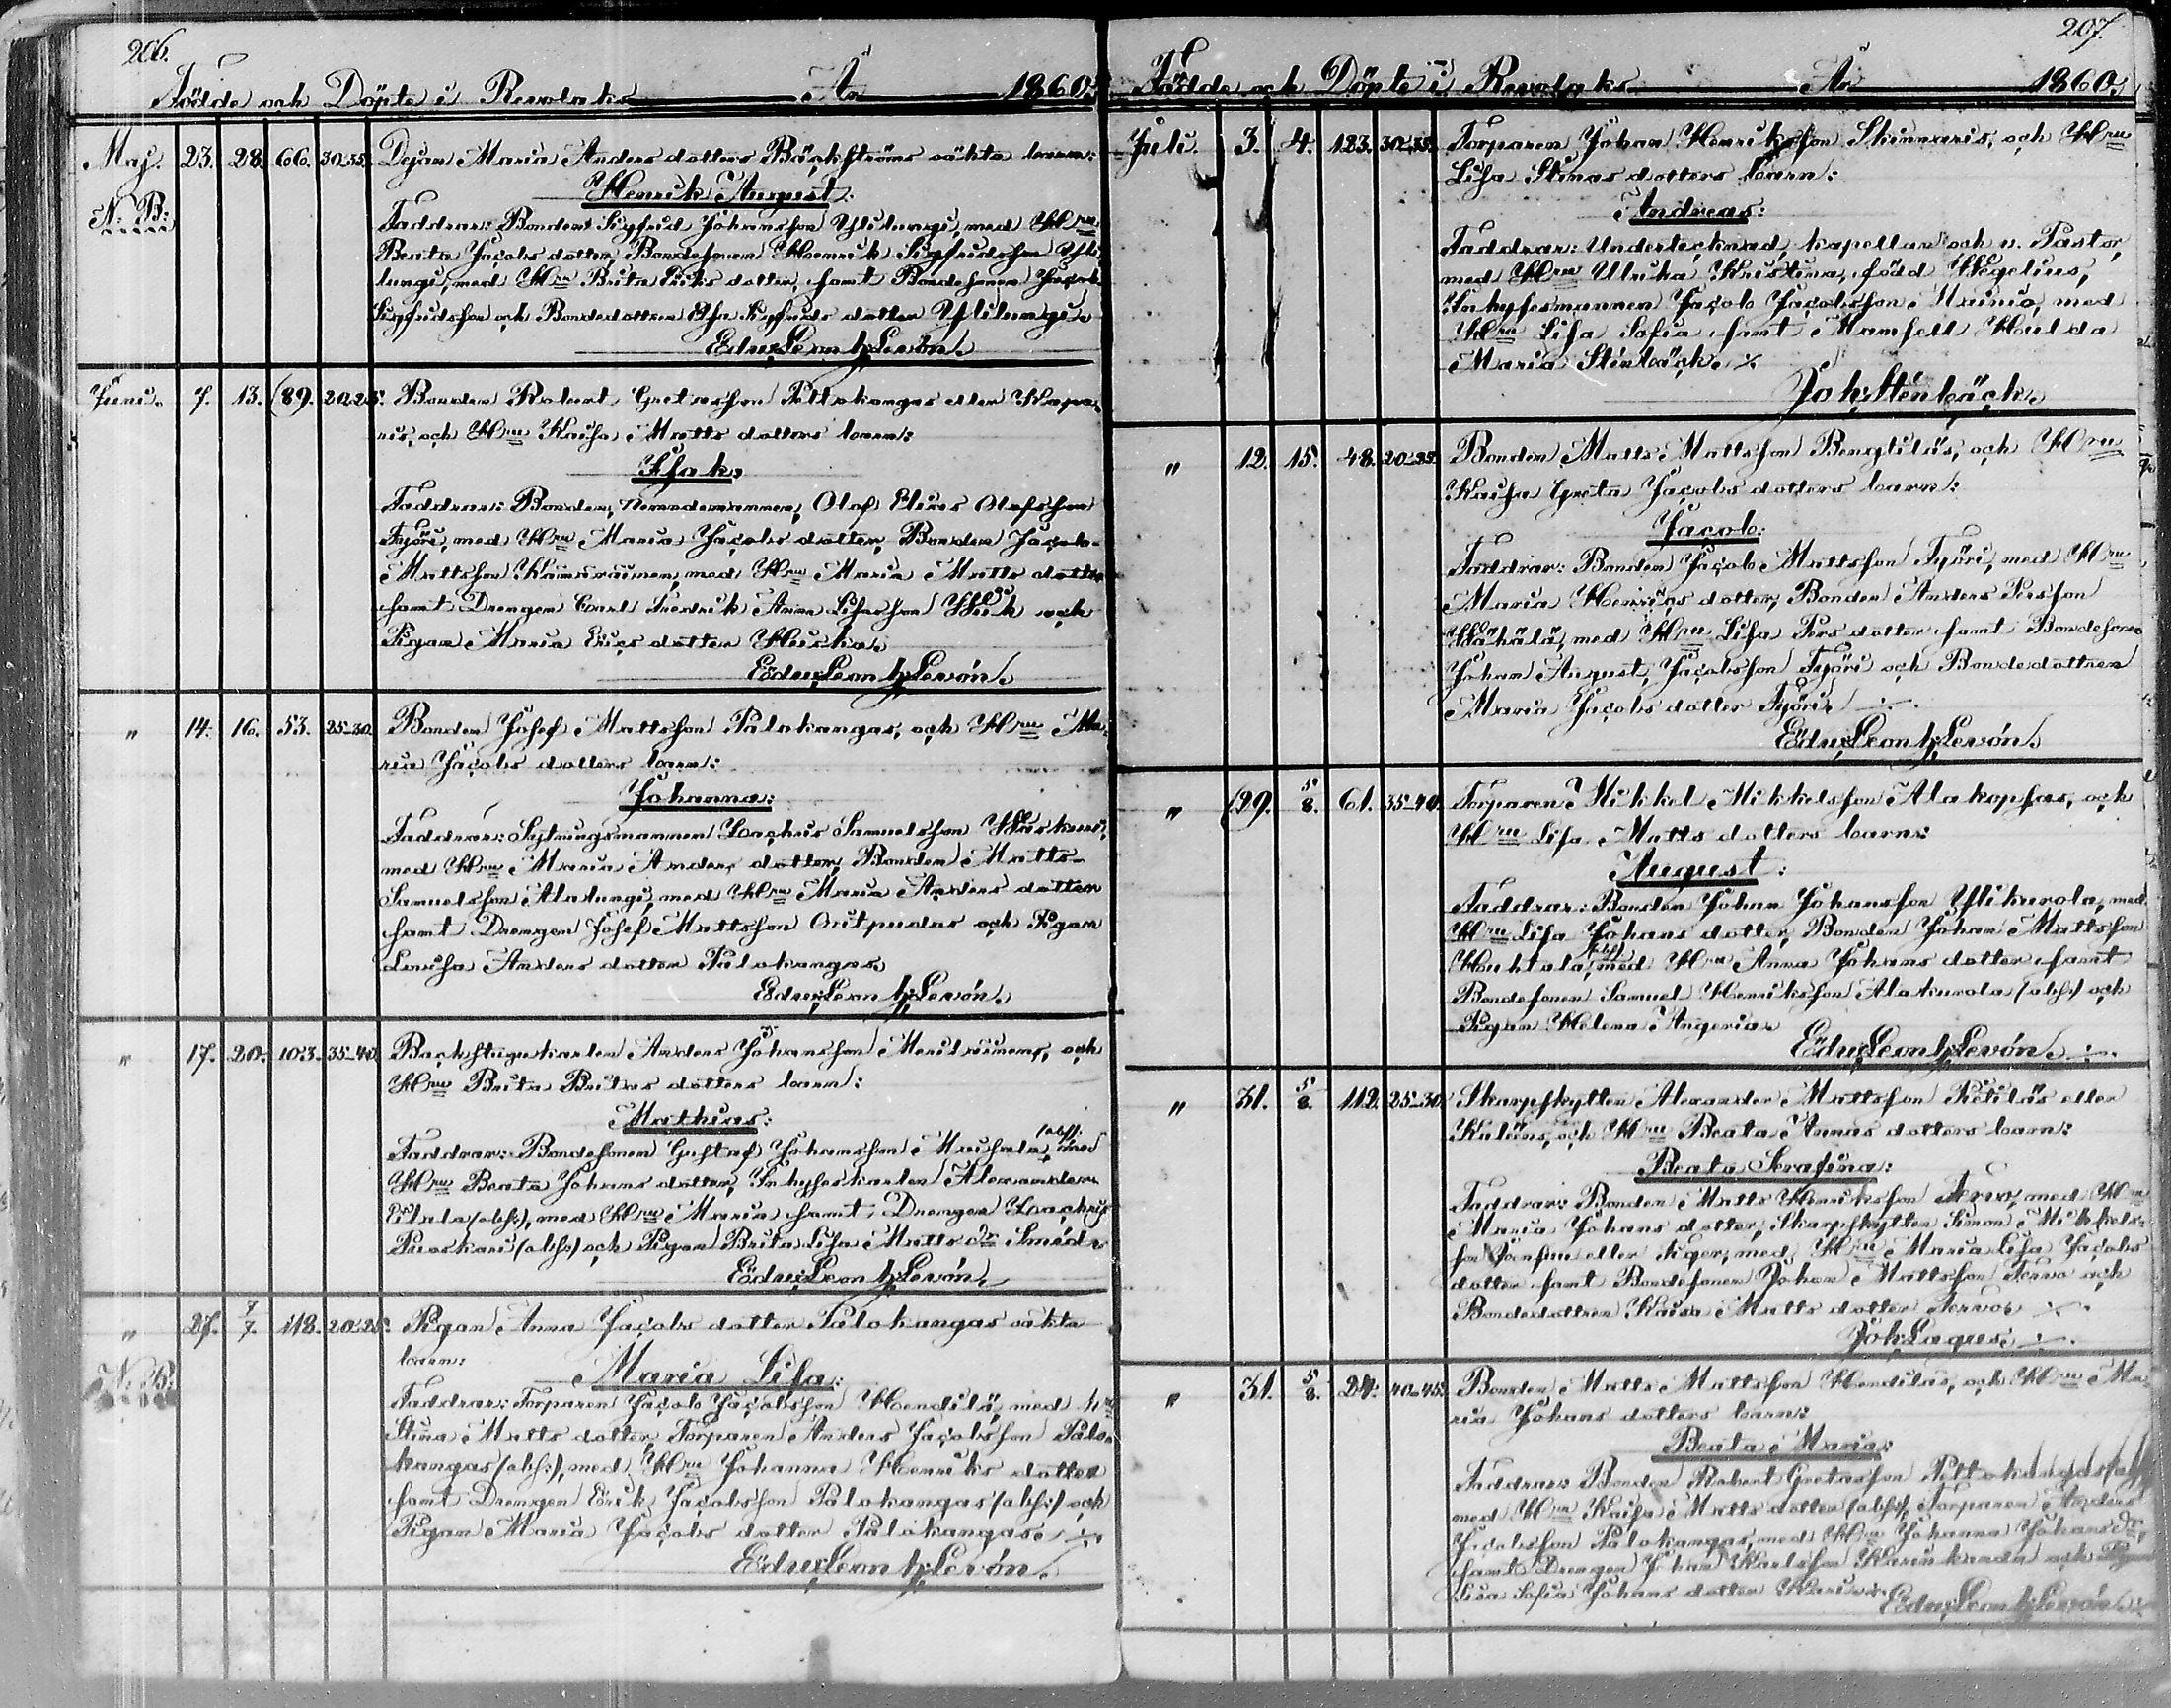 206.
Födde och Döpte i Revolaks År 1860.
Maj. 23. 28. 66. 30-35. Dejan Maria Anders dotters Bäckströms oäkta barn:
N: B: Henrik August.
Faddrar: Bonden Sigfrid Johansson Ylilungi, med H:ru
Beata Jacobs dotter, Bondesonen Henrik Sigfridsson Yli-
lungi, med H:ru Brita Eriks dotter, samt Bondesonen Jacob
Sigfridsson och Bondedottren Elsa Sigfrids dotter Ylilungi.
Edv: Leon h: Levón.
Juni. 7. 13. (89. 20-25. Bonden Robert Gretasson Peltokangas eller
och H:ru Kaisa Matts dotters barn:
Isak.
Faddrar: Bonden, Nemndemannen, Olof Elias Olofsson
Työri, med H:ru Maria Jacobs dotter, Bonden Jacob
Mattsson Kämäräinen, med H:ru Maria Matts dotter
samt Drengen Carl Fredrik Anna Lisasson och
Pigan Maria Erics dotter
Edv: Leon h: Levón.
" 14. 16. 53. 25-30. Bonden Josef Mattsson Palokangas, och H:ru Ma-
ria Jacobs dotters barn:
Johanna:
Faddrar: Sytningsmannen Zachris Samuelsson
med H:ru Maria Anders dotter, Bonden Matts
Samuelsson Alatungi, med H:ru Maria Anders dotter
samt Drengen Josef Mattsson Outpudas och Pigan
Anders dotter Palokangas.
Edv: Leon h: Levón.
" 17. 20. 103. 35-40. Backstugukarlen Anders Johansson Meriläinens, och
H:ru Brita Britas dotters barn:
Mathias:
Faddrar: Bondesonen Gustaf Johansson med
H:ru Beata Johans dotter, Inhyseskarlen Alexander
(abs:), med H:ru Maria samt Drengen Zachris
(abs:) och Pigan Brita Lisa Matts dr Smeds
Edv: Leon h: Levón.
" 27. 7/7. 118. 20-25. Pigan Anna Jacobs dotter Palokangas oäkta
N: B: barn: Maria Lisa:
Faddrar: Torparen Jacob Jacobsson Hendilä, med H:ru
Stina Matts dotter, Torparen Anders Jacobsson Palo-
kangas (abs:), med H:ru Johanna Henriks dotter
samt Drengen Erik Jacobsson Palokangas (abs:) och
Pigan Maria Jacobs dotter Palokangas.
Edv: Leon h: Levón.
207.
Födde och Döpte i Revolaks År 1860.
Juli. 3. 4. 123. 30-35. Torparen Johan Henriksson Skinnaris, och H:ru
Lisa Stinas dotters barn:
Andreas:
Faddrar: Undertecknad, kapellan och v. Pastor,
med H:ru Ulrika Kristina, född Wegelius,
Inhysesmannen Jacob Jacobsson Mainio, med
H:ru Lisa Sofia samt Mamsell Hulda
Maria Stenbäck.
Joh: Stenbäck.
" 12. 15. 48. 20-25. Bonden Matts Mattsson Bengtiläs, och H:ru
Kaisa Greta Jacobs dotters barn:
Jacob:
Faddrar: Bonden Jacob Mattsson Työri, med H:ru
Maria Henrics dotter, Bonden Anders Persson
med H:ru Lisa Pers dotter samt Bondesonen
Johan August Jacobsson Työri och Bondedottren
Maria Jacobs dotter Työri.
Edv: Leon h: Levón.
" (29. 5/8. 61. 35-40. Torparen Mikkel Mikkelsson Alakopsas, och
H:ru Lisa Matts dotters barn:
August:
Faddrar: Bonden Johan Johansson Ylikurola, med
H:ru Lisa Johans dotter, Bonden Johan Mattsson
Huhtala, (abs:) med H:ru Anna Johans dotter samt
Bondesonen Samuel Henriksson Alakurola (abs:) och
Pigan Helena Angeria.
Edv: Leon h: Levón.
" 31. 5/8. 112. 25-30. Skarpskytten Alexander Mattsson Pietiläs eller
och H:ru Beata Annas dotters barn:
Beata Serafina:
Faddrar: Bonden Matts Henriksson Tervo, med H:ru
Maria Johans dotter, Skarpskytten Simon Mikkels-
son Joensuu eller Tiger, med H:ru Maria Lisa Jacobs
dotter samt Bondesonen Johan Mattsson Tervo och
Bondedottren Kaisa Matts dotter Tervo.
Joh: Lagus.
" 31. 5/8. 24. 40-45. Bonden Matts Mattsson Hendiläs, och H:ru Ma-
ria Johans dotters barn:
Beata Maria:
Faddrar: Bonden Robert Gretasson Peltokangas (abs:)
med H:ru Kaisa Matts dotter (abs:), Torparen Anders
Jacobsson Palokangas, med H:ru Johanna Johans dr,
samt Drengen Johan Karlsson och Pigan
Lisa Sofia Johans dotter
Edv: Leon h: Levón.